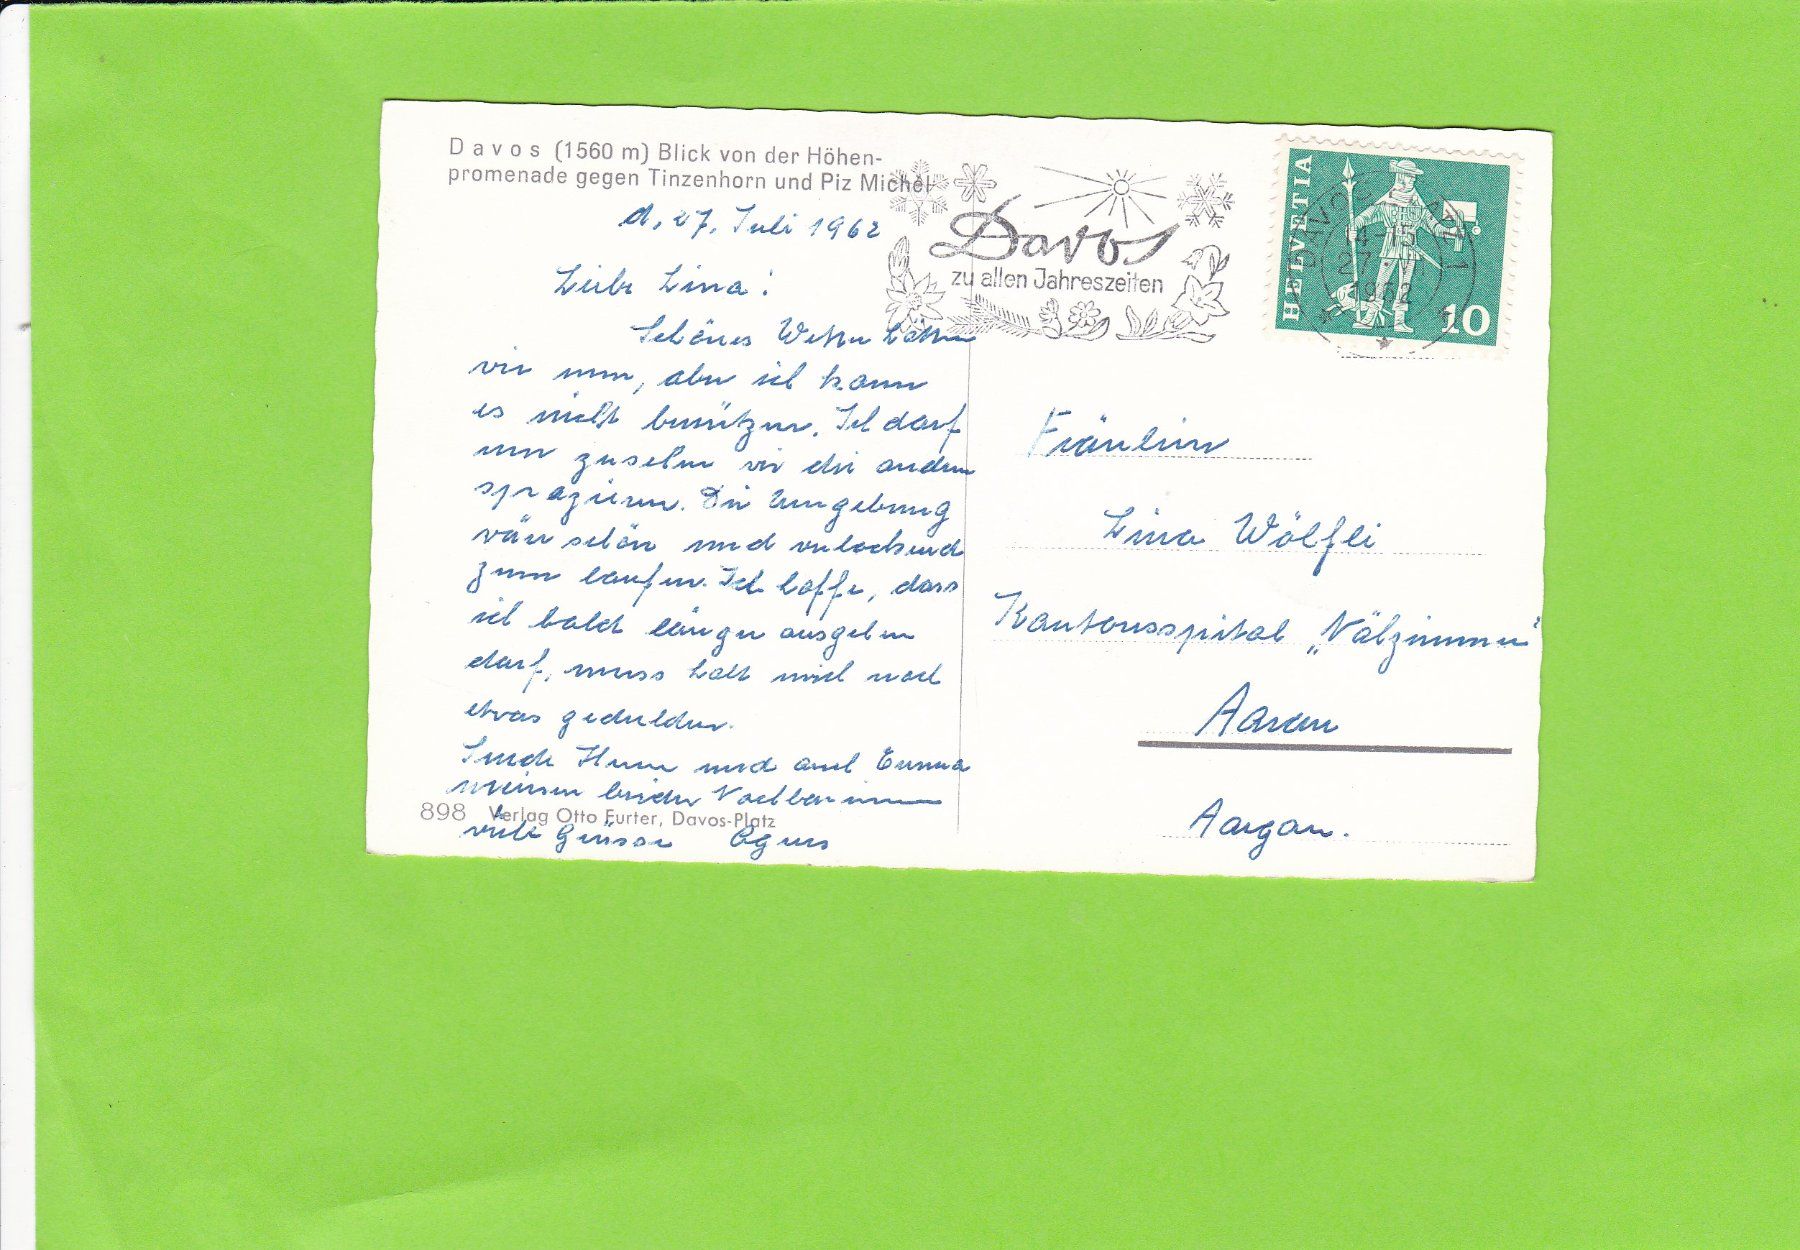 Davos (1560 m) Blick von der Höhen-
promenade gegen Tinzenhorn und Piz Michèl
d, 27. Juli 1962
Liebe Lina!
Schönes Wetter hätten
wir nun, aber ich kann
es nicht benützen. Ich darf
nur zusehen wie die andern
spazieren. Die Umgebung
wäre schön und verlockend
zum laufen. Ich hoffe, dass
ich bald länger ausgehen
darf, muss halt mich noch
etwas gedulden.
Sende Ihnen und auch Emma
meinen beiden Nachbarinnen
viele Grüsse Agnes
898 Verlag Otto Furter, Davos-Platz
Davos
zu allen Jahreszeiten
HELVETIA
10
DAVOS
14-15
27.
1962
Fräulein
Lina Wölfli
Kantonsspital „Nähzimmer"
Aarau
Aargau.